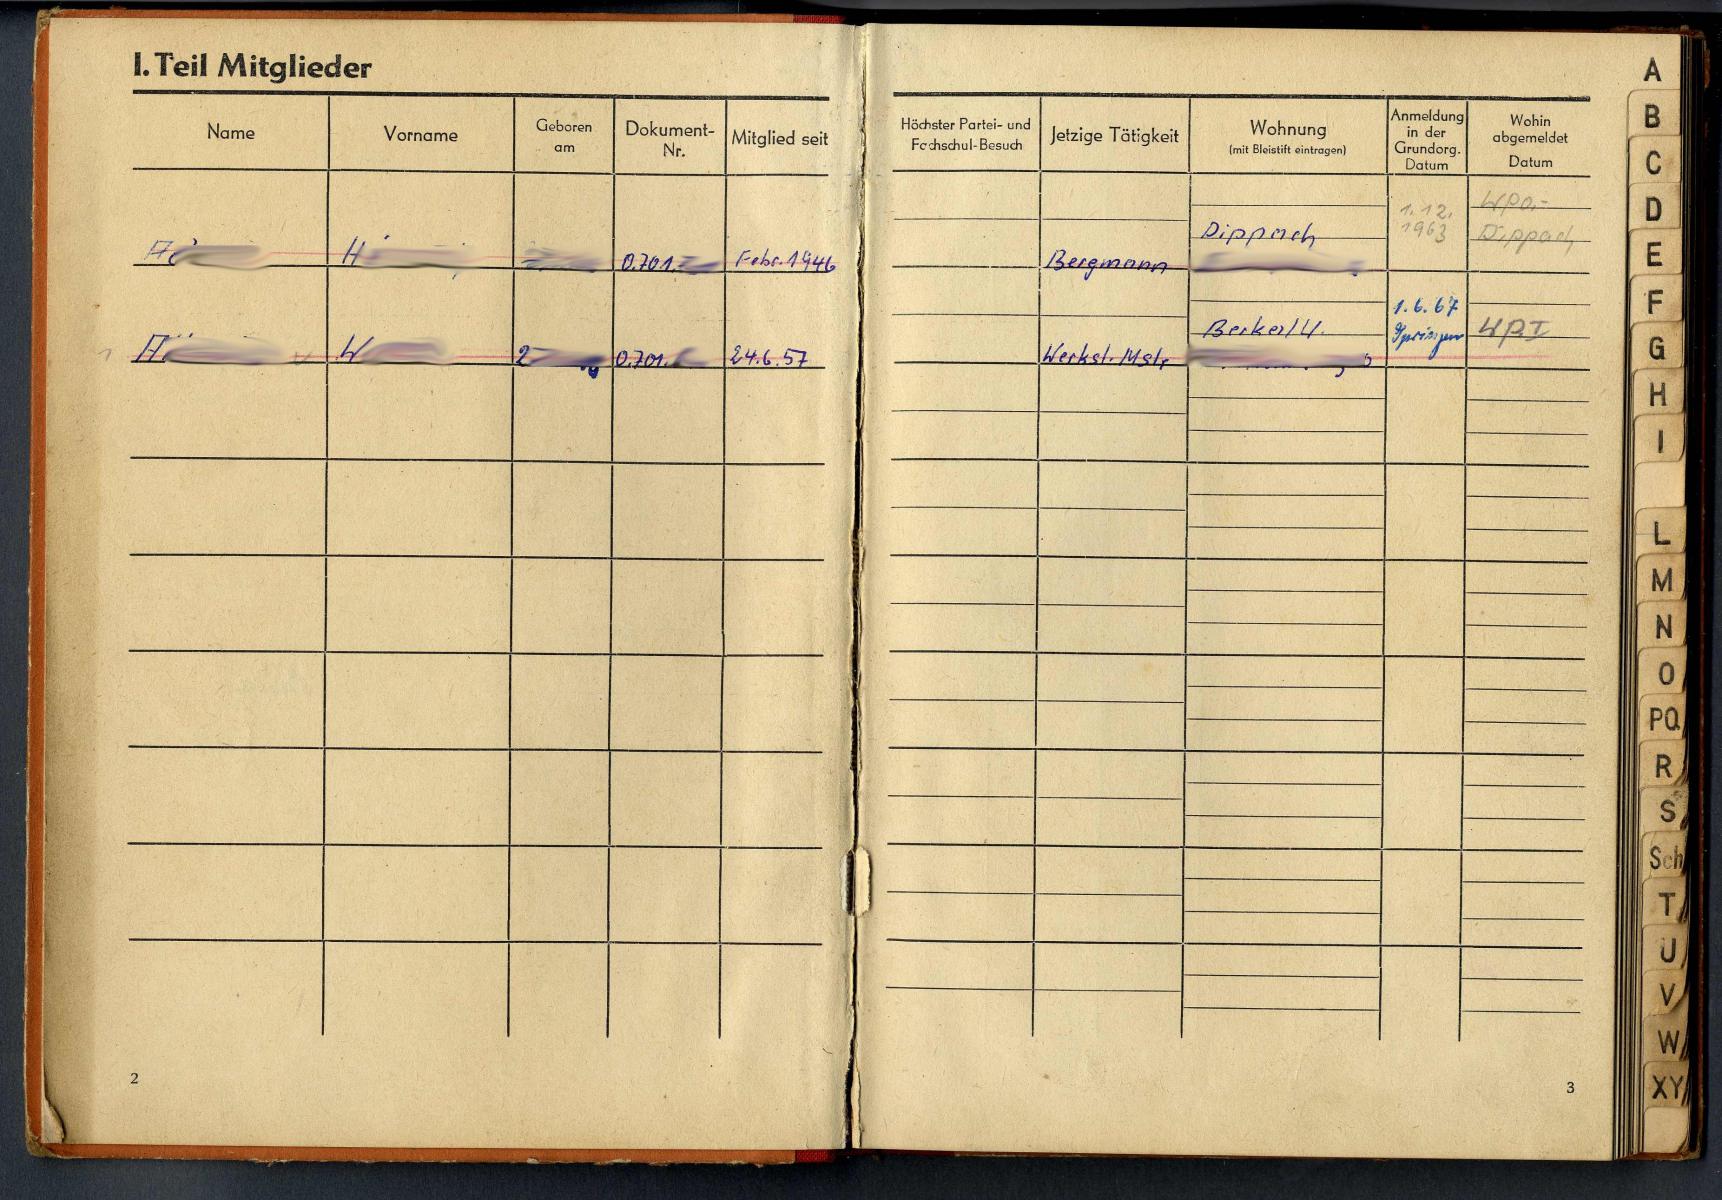 I. Teil Mitglieder
Name
Vorname
Geboren
am
Dokument-
Nr.
Mitglied seit
Höchster Partei- und
Fachschul-Besuch
Jetzige Tätigkeit
Wohnung
(mit Bleistift eintragen)
Anmeldung
in der
Grundorg.
Datum
Wohin
abgemeldet
Datum
H
0.701.
Febr. 1946
Bergmann
Dippach
1.12.
1963
WPO.-
Dippach
1
W
2
0.701.
24.6.57
Werkst. Mstr
Berka/W.
1.6.67
WPI
2
3
A
B
C
D
E
F
G
H
I
L
M
N
O
PQ
R
S
Sch
T
U
V
W
XY